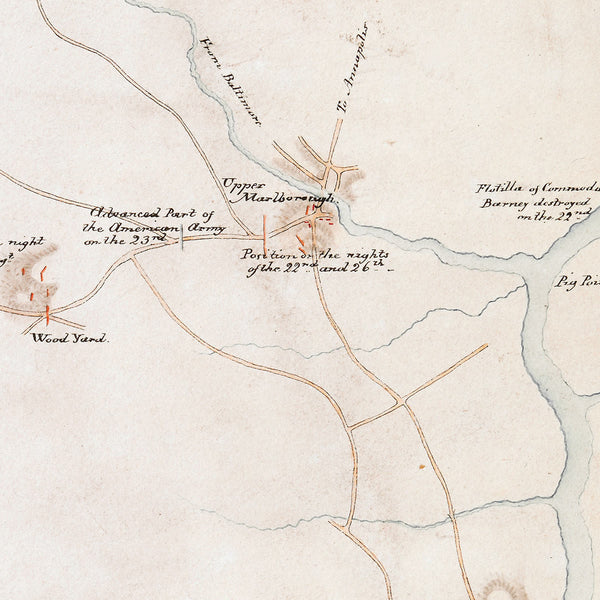 From Baltimore
To Annapolis
Upper
Marlborough.
Flotilla of Commodo
Barney destroyed
on the 22nd
Advanced Part of
the American Army
on the 23rd
night
Position on the nights
of the 22nd and 26th
Pig Poi
Wood Yard.